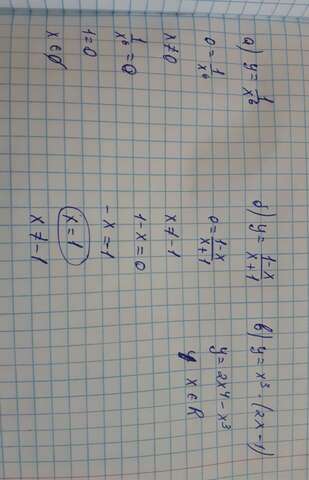 а) y = 1/x⁶
0 = 1/x⁶
x ≠ 0
1/x⁶ = 0
1 = 0
x ∈ ∅
б) y = (1-x)/(x+1)
0 = (1-x)/(x+1)
x ≠ -1
1-x = 0
-x = -1
x = 1
x ≠ -1
в) y = x³ · (2x-1)
y = 2x⁴ - x³
x ∈ R